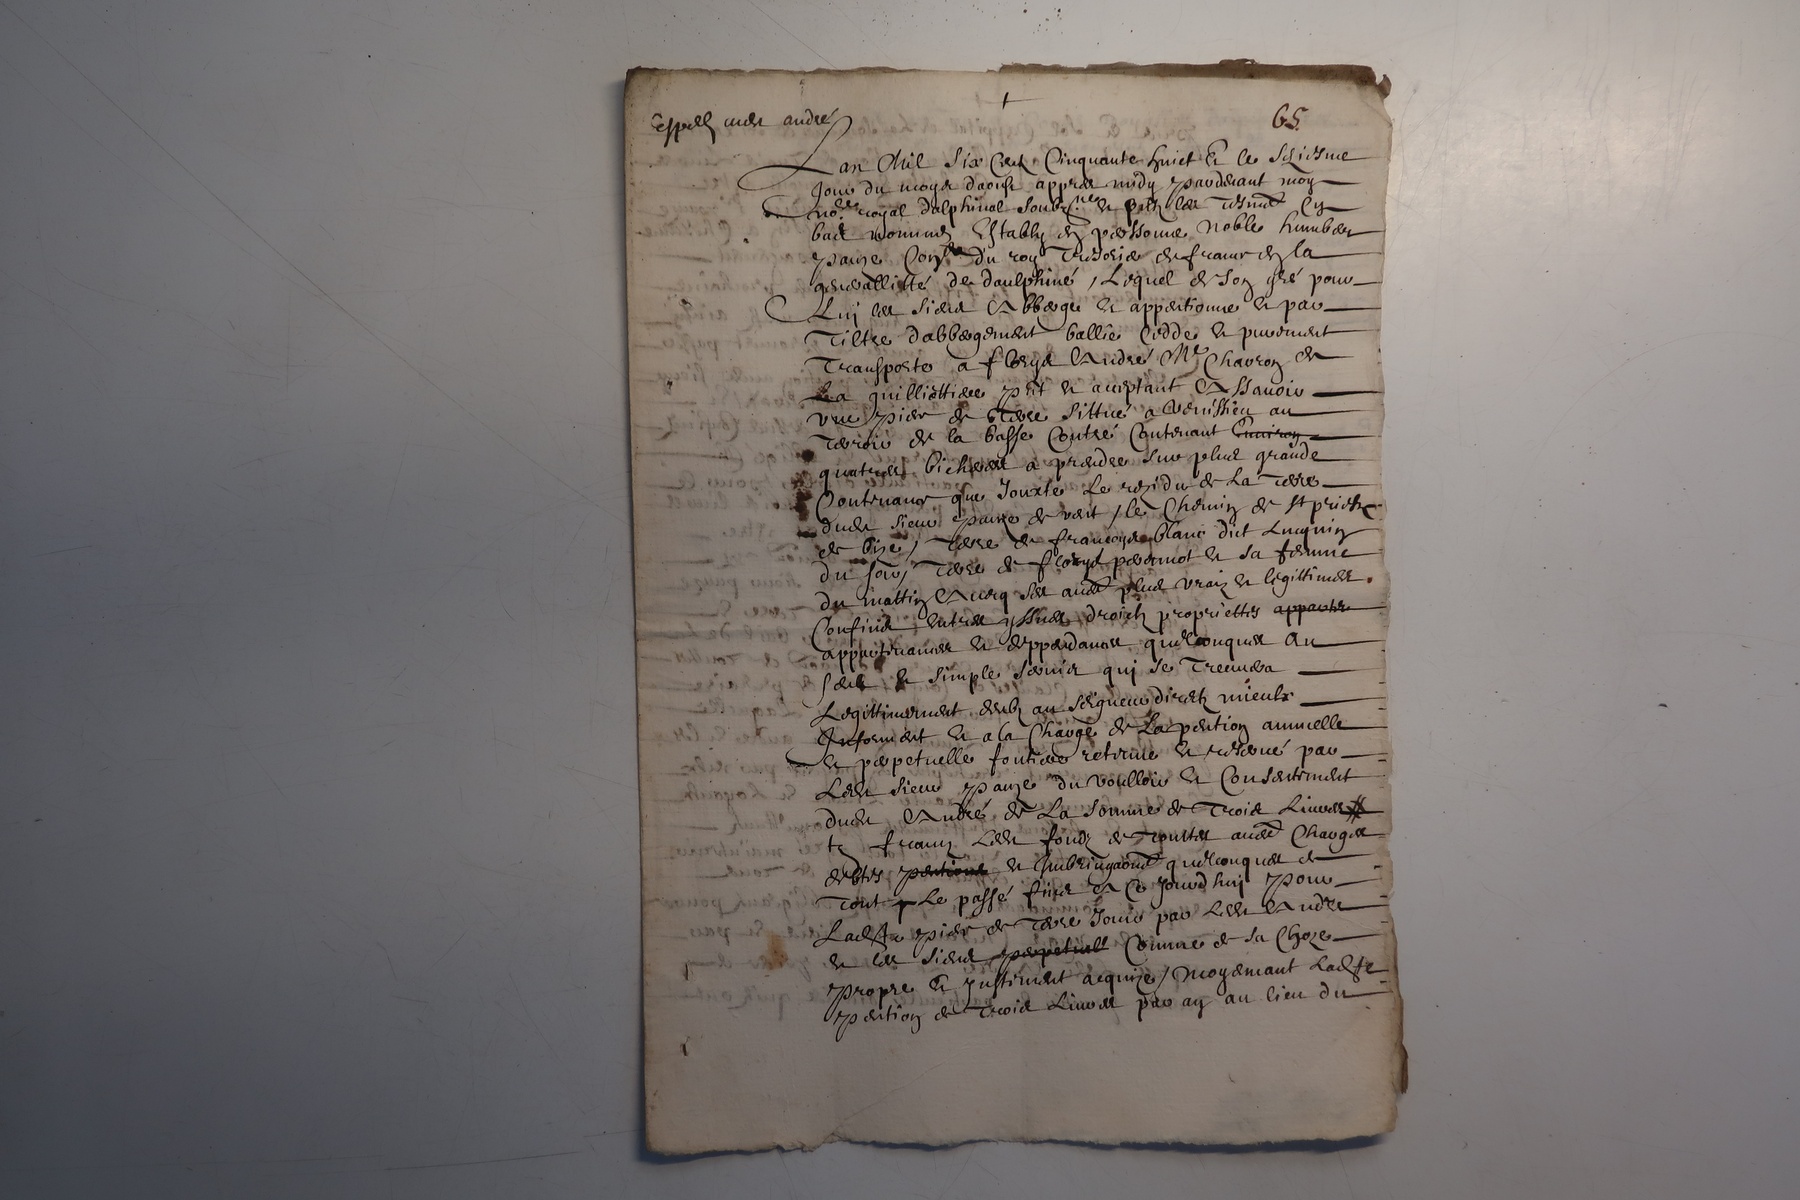 65
Lan Mil Six Cent Cinquante huict & le seiziesme
Jour du moys daoust appres midy pardevant moy
no.re royal dalphinal soubz.ne & pntz les tesmoings Cy
bas nommes Estably en personne Noble humbert
paize Con.er du roy Tresorier de france en la
generallitté de daulphiné / Lequel de son gré pour
Luy les siens Abberge & appentionne & par
Tiltre dabbergement ballie Cedde & purement
Transporte a fleurys André M.e Charron de
La guilliottiere pnt & acceptant Assavoir
une piece de Terre sittué a Venissieu au
Terroir de la basse Contré Contenant Environ
quatres bicherés a prendre sur plus grande
Contenance que Jouxte Le rezidu de La Terre
dudt sieur paize de vent / le Chemin de st prietz
de bize / Terre de françoys blanc dict
du soir / Terre de fleurys pervernot & sa femme
du mattin Avecq ses aues plus vrais & legittimes
Confins Entrées yssues droictz proprietés apparte
appartenances & deppendances quelconques Au
Cens & simple servis qui se Treuvera
Legittimement deub au seigneur direct mieulx
Informent & a la Charge de La pention annuelle
& perpetuelle fonciere retenue & reservé par
Ledt sieur paize du voulloir & Consentement
dudt André de La Somme de Trois Livres
francz Ledt fondz de Touttes aues Charges
debtes pentions & quelconques de
Tout Le passé Jusques A Ce Jourdhuy pour
Ladte piece de Terre Jouir par Ledt André
& les siens perpetuell Comme de sa Choze
propre & Justement acquize / moyenant Ladte
pention de Trois Livres par an au lieu du